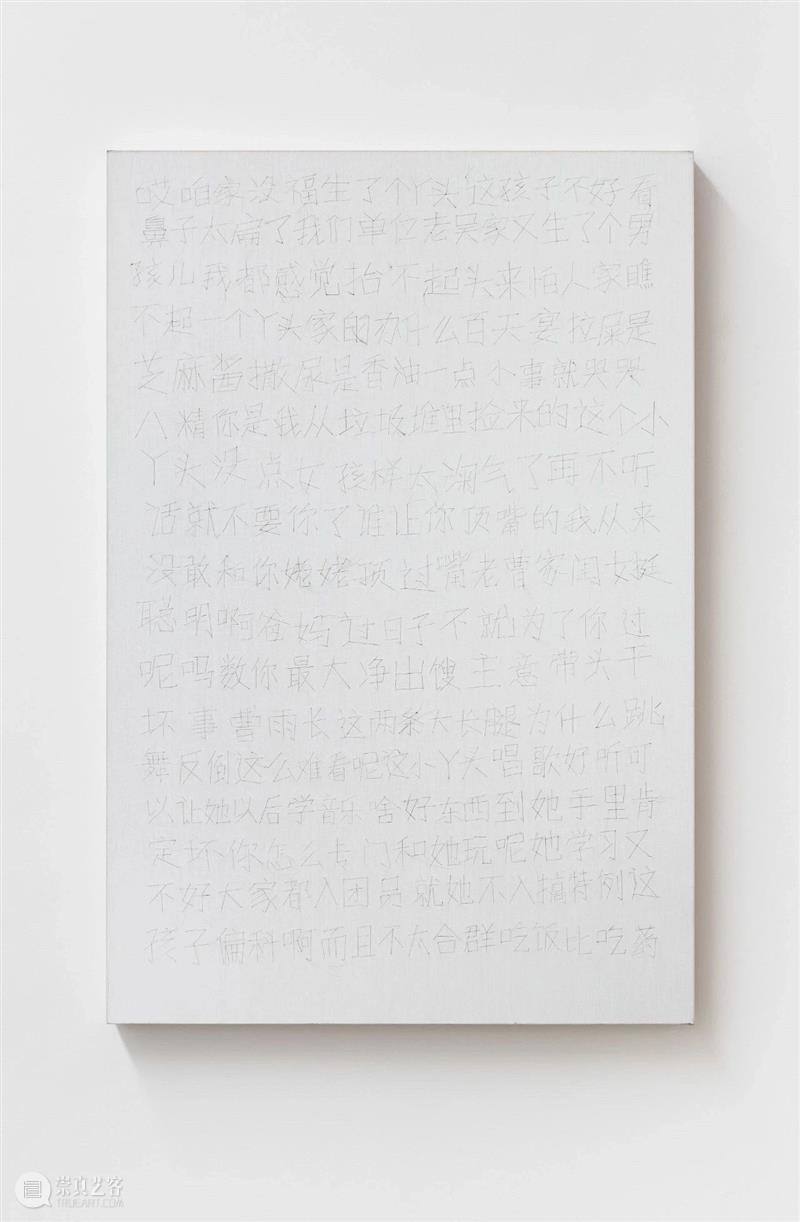 哎咱家没福生了个丫头这孩子不好看
鼻子太扁了我们单位老吴家又生了个男
孩儿我都感觉抬不起头来怕人家瞧
不起一个丫头家的办什么百天宴拉屎是
芝麻酱撒尿是香油一点小事就哭哭
八精你是我从垃圾堆里捡来的这个小
丫头没点女孩样太淘气了再不听
话就不要你了谁让你顶嘴的我从来
没敢和你姥姥顶过嘴老曹家闺女挺
聪明啊爸妈过日子不就为了你过
呢吗数你最大净出馊主意带头干
坏事曹雨长这两条大长腿为什么跳
舞反倒这么难看呢这小丫头唱歌好听可
以让她以后学音乐啥好东西到她手里肯
定坏你怎么专门和她玩呢她学习又
不好大家都入团员就她不入搞特例这
孩子偏科啊而且不太合群吃饭比吃药
崇真艺客
TRUEART.COM